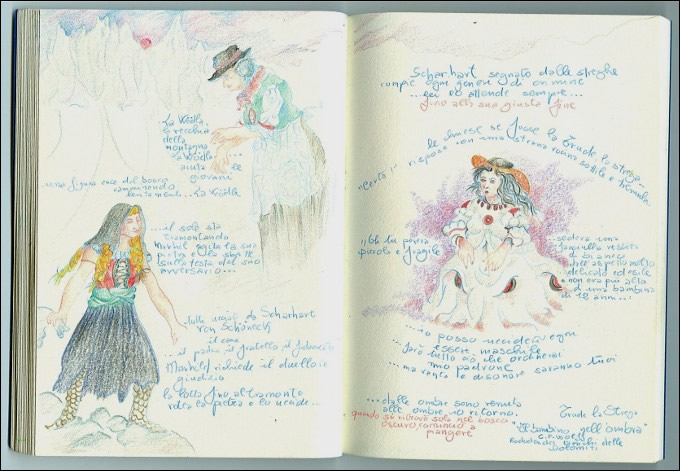 La Vödla
è vecchia
della
montagna
la Vödla
aiuta le
giovani
una figura esce dal bosco
camminando
lentamente... La Vödla
...il sole sta
tramontando
la sua
pietra e la
sulla testa del suo
avversario...
tutti uccisi da Scharhart
von Schöneck
il cane
...il padre il fratello il fidanzato
richiede il duello e
giudizio
la lotta fino al tramonto
rotea la pietra e lo uccide...
Scharhart segnato dalle streghe
compie ogni genere di crimine
...lei lo attende sempre...
fino alla sua giusta fine
le chiese se fosse la Trude la strega...
"Certo!" rispose con una strana vocina sottile e tremula
"Oh tu povera
piccola e fragile
sedeva con
tranquilla vestita
di bianco
dall'aspetto molto
delicato ed esile
e non era più alta
d'una bambina
di 12 anni...
...io posso uccidere ogni
essere maschile
...farò bello ciò che ordinerai
mio padrone
...ma vanto e disonore saranno tuoi
...dalle ombre sono venuta
alle ombre io ritorno.
quando si ritrovò sola nel bosco
oscuro, cominciò a
piangere
Trude la Strega
"Il bambino nell'ombra"
C.F. Wolff
Rododendri bianchi delle
Dolomiti